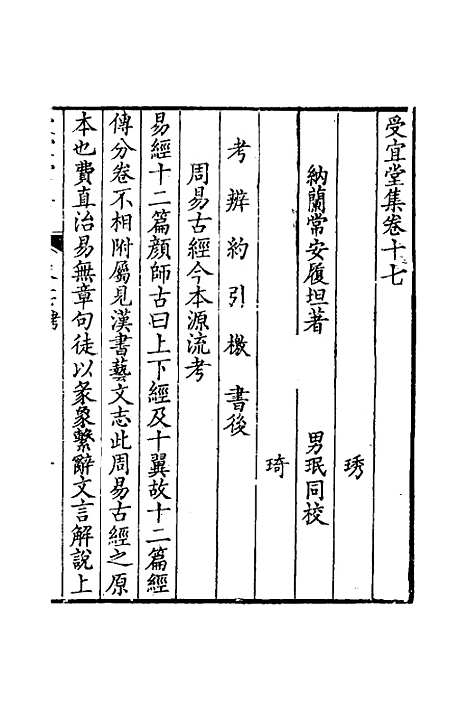 受宜堂集卷十七
琇
納蘭常安履坦著 男珉同校
琦
考辨約引檄書後
周易古經今本源流考
易經十二篇顏師古曰上下經及十翼故十二篇經
傳分卷不相附屬見漢書藝文志此周易古經之原
本也費直治易無章句徒以彖象繫辭文言解說上